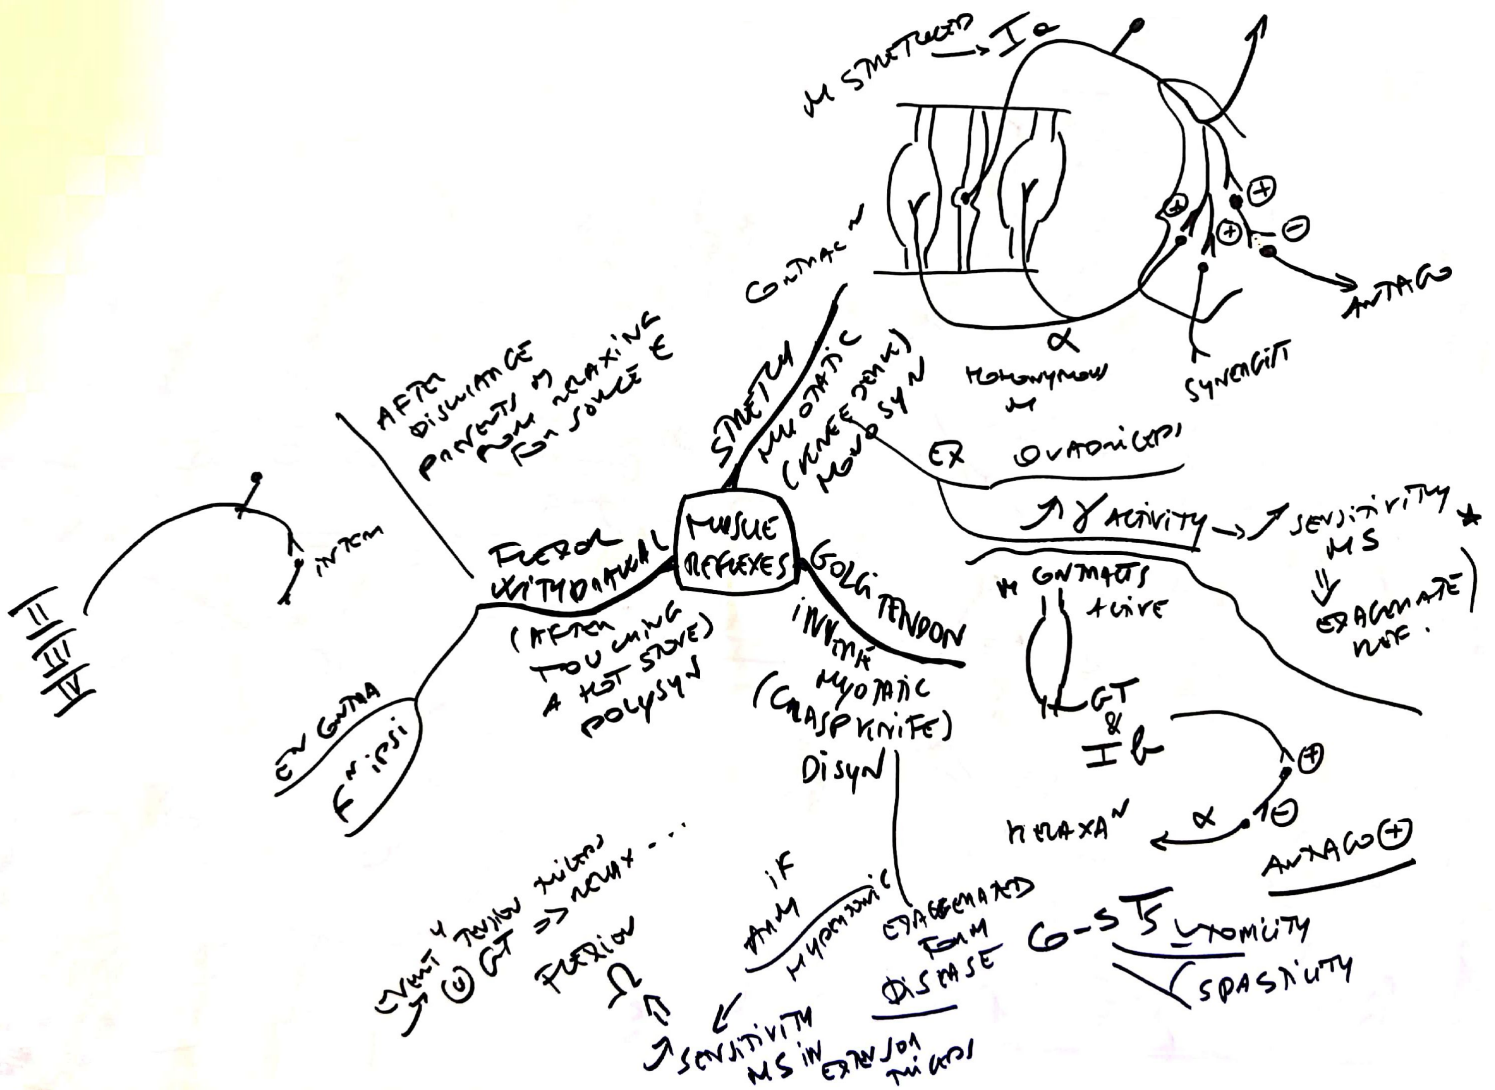 MUSCLE
REFLEXES
STRETCH
MYOTATIC
(KNEE JERK)
MONOSYN
CONTRAC N
M STRETCHED → Ia
+
+
+
-
ANTAGO
SYNERGIST
α
HOMONYMOUS
M
EX QUADRICEPS
↗ γ ACTIVITY → ↗ SENSITIVITY
MS
⇓
EXAGERATE
REF.
GOLGI TENDON
INVERSE
MYOTATIC
(CLASP KNIFE)
DISYN
M CONTRACTS
ACTIVE
GT
&
Ib
+
-
α
RELAXA N
ANTAGO +
EXAGGERATED
FORM
DISEASE
C-ST
SPASTICITY
IF
ARM
HYPERTONIC
↗ SENSITIVITY
MS IN EXTENSOR
⇑
FLEXION
Ω
EVENT Y
↗ TENSION TRICEPS
GT >> RELAX ...
FLEXOR
WITYDRAWAL
(AFTER
TOUCHING
A HOT STOVE)
POLYSYN
AFTER
DISCHARGE
PREVENTS M
FROM RELAXING
FOR SOME T
INTERN
II
III
IV
E N CONTRA
F N IPSI